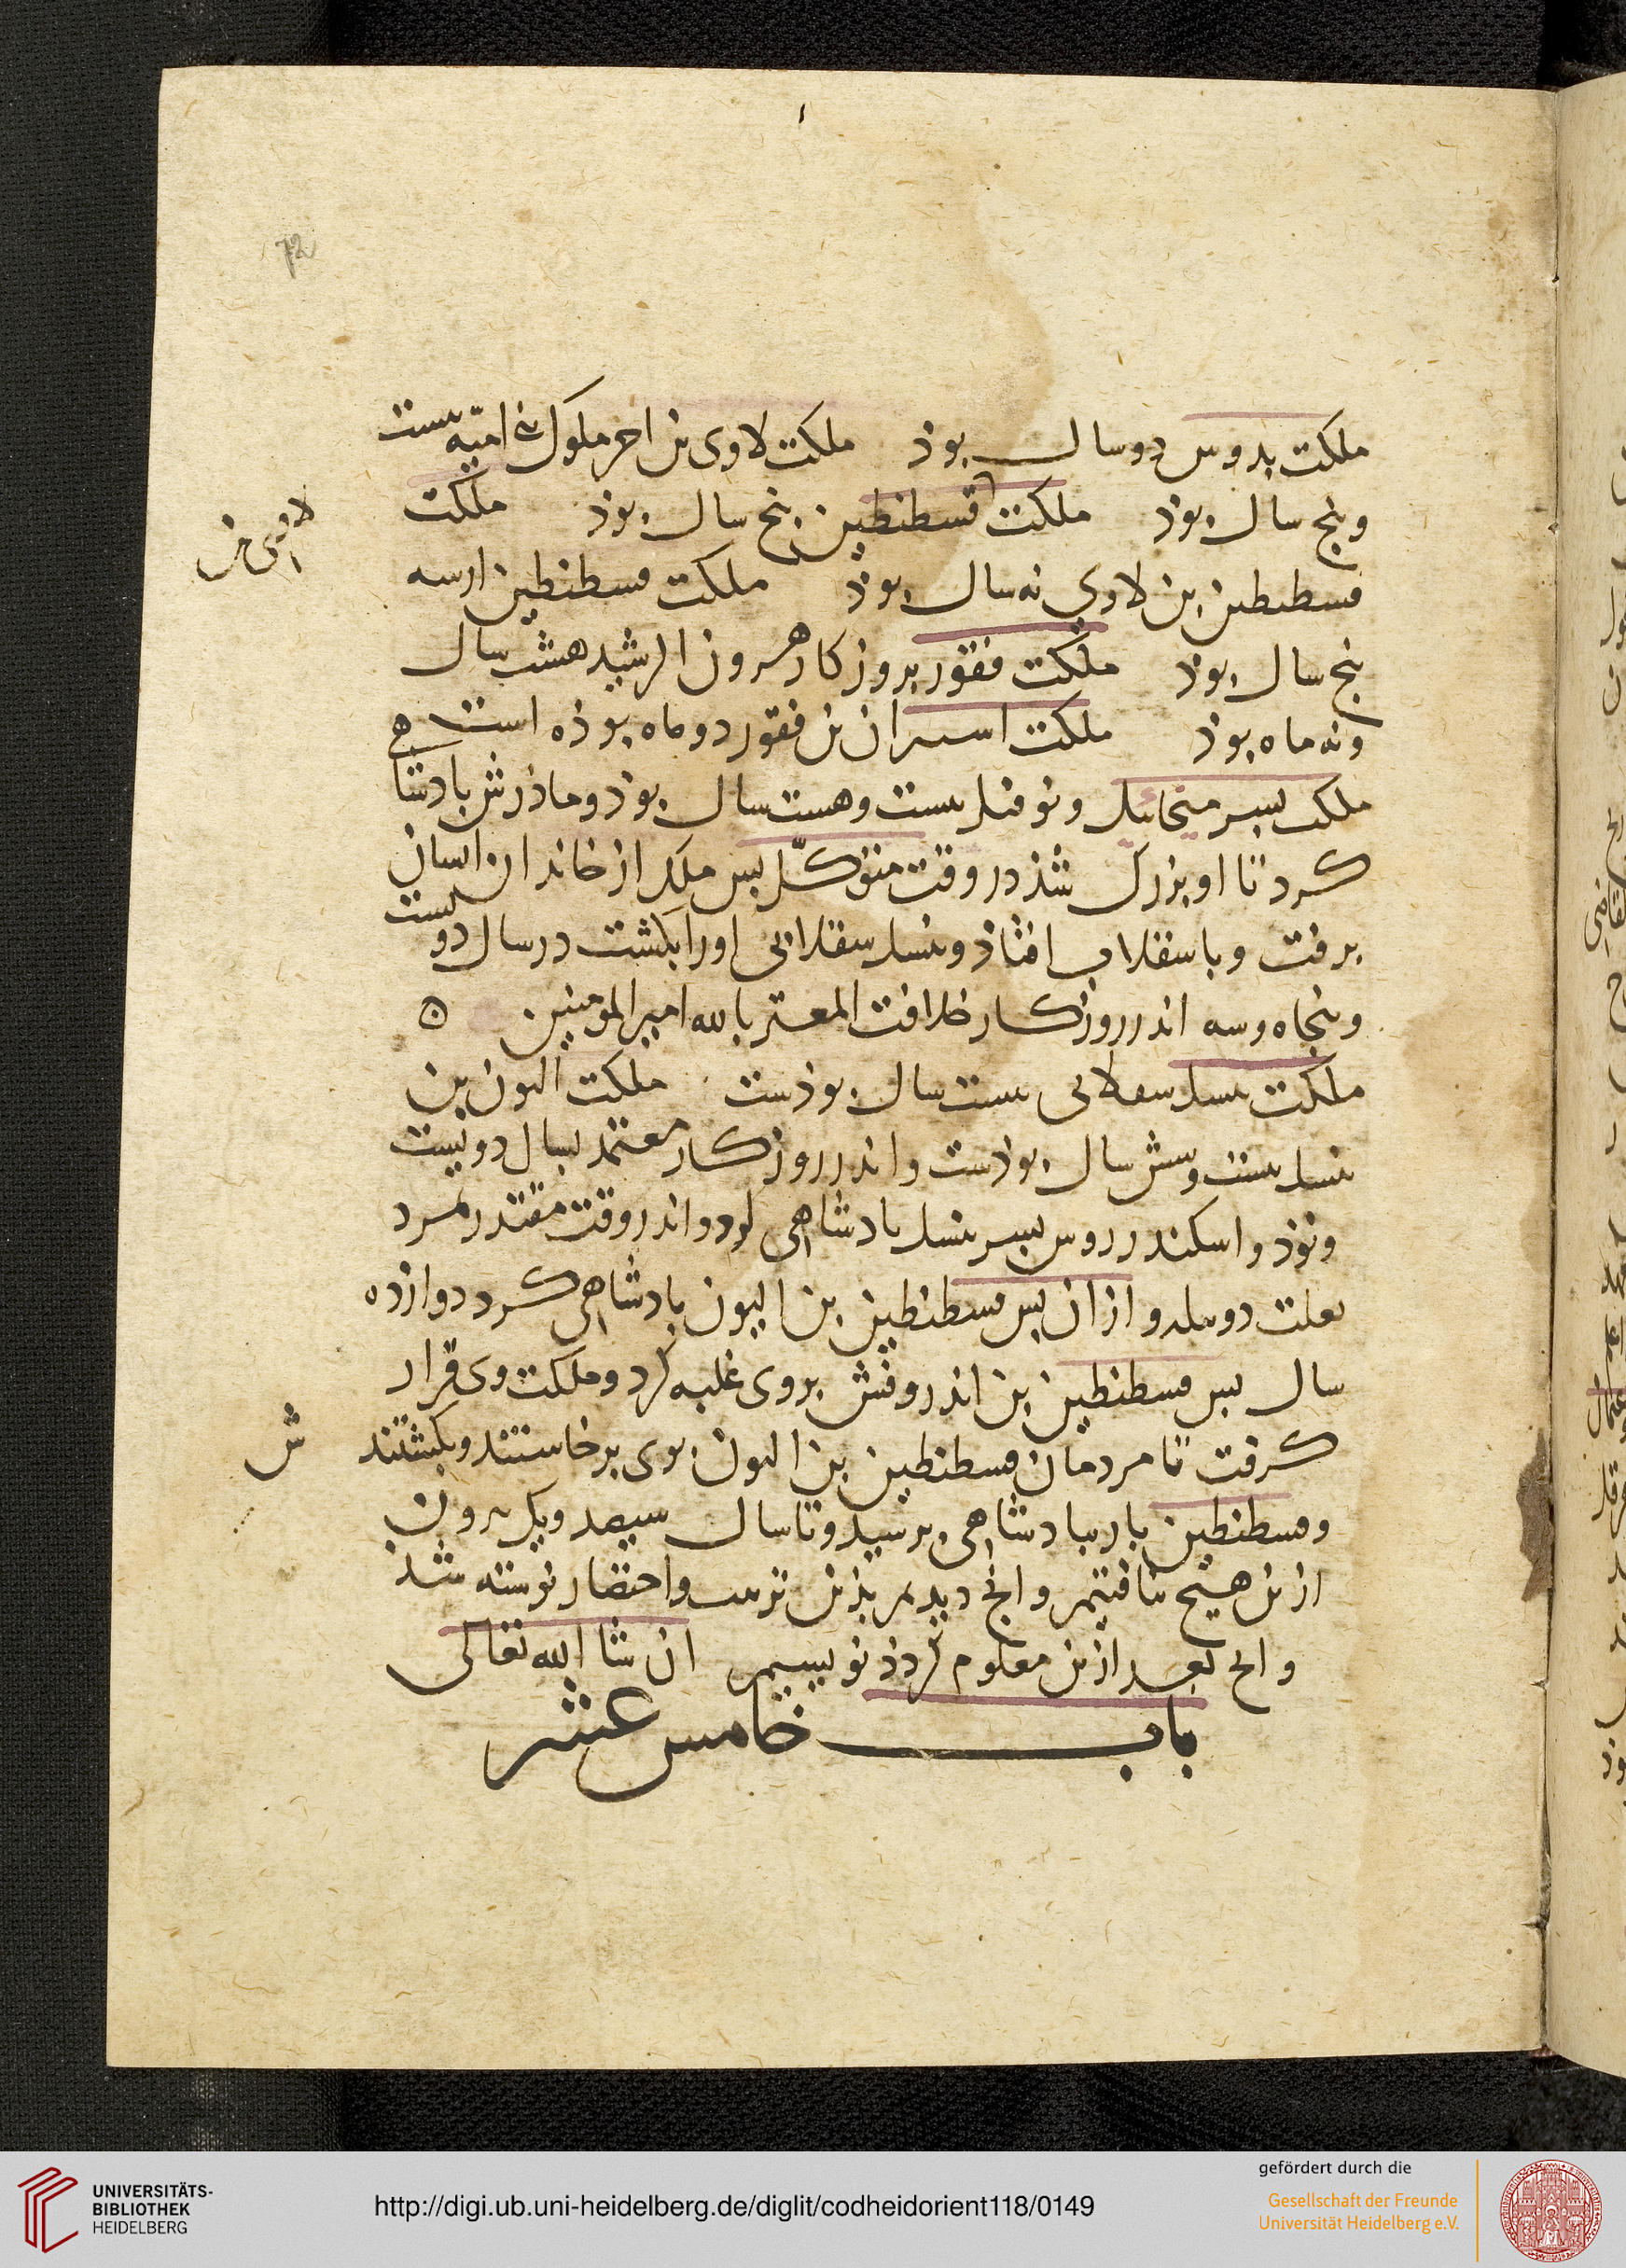 72
ملکت بدوس دو سال بوذ ملکت لاوی بن اخر ملوک بنی امیه بیست
وپنج سال بوذ ملکت قسطنطین پنج سال بوذ ملکت
قسطنطین بن لاوی نه سال بوذ ملکت قسطنطین ارسه
پنج سال بوذ ملکت نقفور بروزکار هرون الرشید هشت سال
ونه ماه بوذ ملکت استبران بن نقفور دو ماه بوذه است
ملکت پسر میخائیل ونوفیل بیست وهست سال بوذ وماذرش بادشاهی
کرد تا او بزرک شذ در وقت متوکل بس ملک از خاندان ایشان
برفت وبا سقلاب افتاذ وبسیل سقلابی اورا بکشت در سال دویست
وپنجاه وسه اندر روزکار خلافت المعتز بالله امیر المؤمنین ه
ملکت بسیل سقلابی بیست سال بوذست ملکت الیون بن
بسیل بیست وشش سال بوذست واندر روزکار معتمد بسال دویست
ونوذ واسکندروس پسر بسیل بادشاهی کرد واندر وقت مقتدر بمرد
بعلت دوبیله واز ان پس قسطنطین بن الیون بادشاهی کرد دوازده
سال بس قسطنطین بن اندرونقش بروی غلبه کرد وملکت وی قرار
کرفت تا مردمان قسطنطین بن الیون بوی برخاستند وبکشتند ش
وقسطنطین باز ببادشاهی برسید وتا سال سیصد ویک بیرون
ازین هیچ نیافتیم وانچ دیدیم بذین ترتیب واختصار نوشته شذ
وانچ بعد ازین معلوم کردذ نویسیم ان شا الله تعالی
باب خامس عشر
UNIVERSITÄTS-
BIBLIOTHEK
HEIDELBERG
http://digi.ub.uni-heidelberg.de/diglit/codheidorient118/0149
gefördert durch die
Gesellschaft der Freunde
Universität Heidelberg e.V.